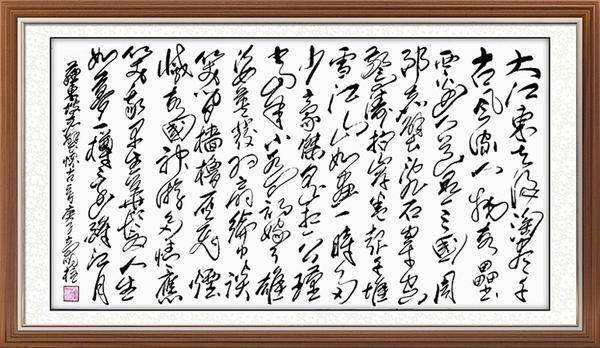 大江東去浪淘盡千
古風流人物故壘
西邊人道是三國周
郎赤壁亂石穿空
驚濤拍岸捲起千堆
雪江山如畫一時多
少豪傑遙想公瑾
當年小喬初嫁了雄
姿英發羽扇綸巾談
笑間檣櫓灰飛煙
滅故國神遊多情應
笑我早生華髮人生
如夢一樽還酹江月
蘇東坡赤壁懷古